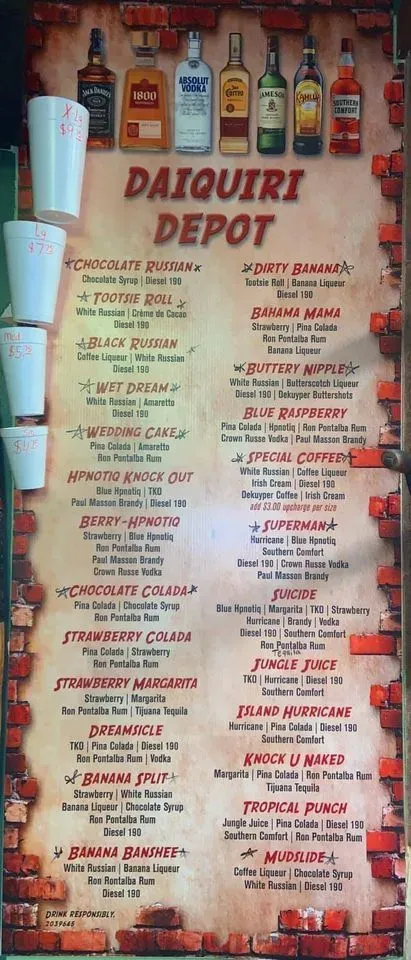 JACK DANIEL'S
1800
ABSOLUT
VODKA
JOSE
CUERVO
JAMESON
KAHLÚA
SOUTHERN
COMFORT
X-Lg
Lg
$7.25
Med
DAIQUIRI
DEPOT
CHOCOLATE RUSSIAN
Chocolate Syrup | Diesel 190
TOOTSIE ROLL
White Russian | Crème de Cacao
Diesel 190
BLACK RUSSIAN
Coffee Liqueur | White Russian
Diesel 190
WET DREAM
White Russian | Amaretto
Diesel 190
WEDDING CAKE
Pina Colada | Amaretto
Ron Pontalba Rum
HPNOTIQ KNOCK OUT
Blue Hpnotiq | TKO
Paul Masson Brandy | Diesel 190
BERRY-HPNOTIQ
Strawberry | Blue Hpnotiq
Ron Pontalba Rum
Paul Masson Brandy
Crown Russe Vodka
CHOCOLATE COLADA
Pina Colada | Chocolate Syrup
Ron Pontalba Rum
STRAWBERRY COLADA
Pina Colada | Strawberry
Ron Pontalba Rum
STRAWBERRY MARGARITA
Strawberry | Margarita
Ron Pontalba Rum | Tijuana Tequila
DREAMSICLE
TKO | Pina Colada | Diesel 190
Ron Pontalba Rum | Vodka
BANANA SPLIT
Strawberry | White Russian
Banana Liqueur | Chocolate Syrup
Ron Pontalba Rum
Diesel 190
BANANA BANSHEE
White Russian | Banana Liqueur
Ron Rontalba Rum
Diesel 190
DIRTY BANANA
Tootsie Roll | Banana Liqueur
Diesel 190
BAHAMA MAMA
Strawberry | Pina Colada
Ron Pontalba Rum
Banana Liqueur
BUTTERY NIPPLE
White Russian | Butterscotch Liqueur
Diesel 190 | Dekuyper Buttershots
BLUE RASPBERRY
Pina Colada | Hpnotiq | Ron Pontalba Rum
Crown Russe Vodka | Paul Masson Brandy
SPECIAL COFFEE
White Russian | Coffee Liqueur
Irish Cream | Diesel 190
Dekuyper Coffee | Irish Cream
add $3.00 upcharge per size
SUPERMAN
Hurricane | Blue Hpnotiq
Southern Comfort
Diesel 190 | Crown Russe Vodka
Paul Masson Brandy
SUICIDE
Blue Hpnotiq | Margarita | TKO | Strawberry
Hurricane | Brandy | Vodka
Diesel 190 | Southern Comfort
Ron Pontalba Rum
Tequila
JUNGLE JUICE
TKO | Hurricane | Diesel 190
Southern Comfort
ISLAND HURRICANE
Hurricane | Pina Colada | Diesel 190
Southern Comfort
KNOCK U NAKED
Margarita | Pina Colada | Ron Pontalba Rum
Tijuana Tequila
TROPICAL PUNCH
Jungle Juice | Pina Colada | Diesel 190
Southern Comfort | Ron Pontalba Rum
MUDSLIDE
Coffee Liqueur | Chocolate Syrup
White Russian | Diesel 190
DRINK RESPONSIBLY.
2039645